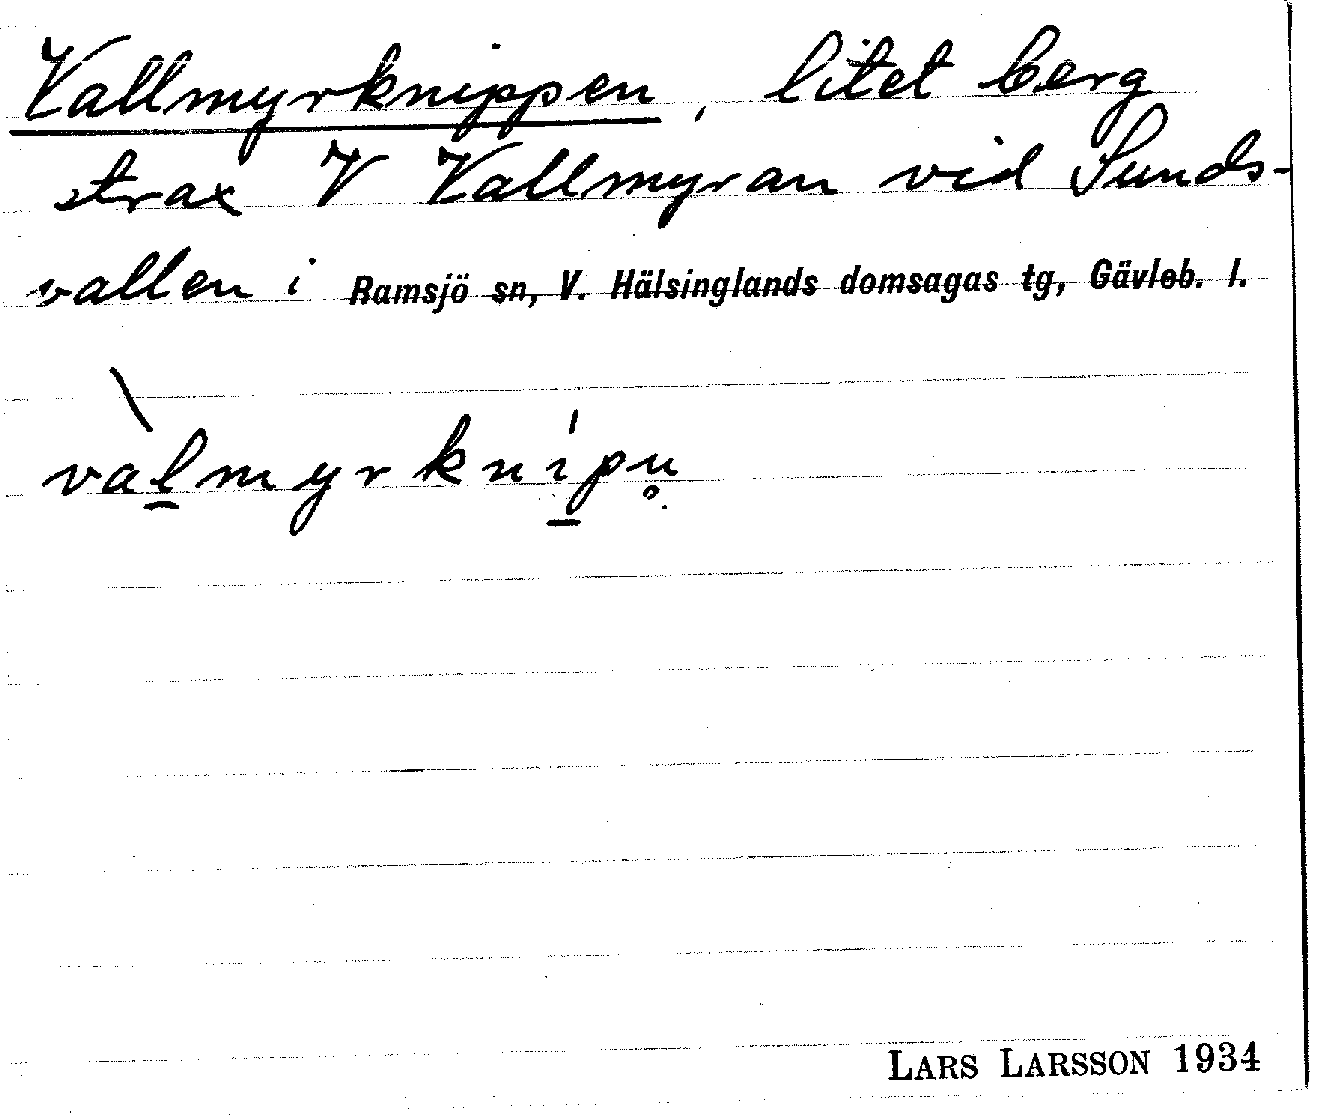 Vallmyrknippen, litet berg
strax V Vallmyran vid Sunds-
vallen i Ramsjö sn, V. Hälsinglands domsagas tg, Gävleb. l.
val̲myrkní̲pn̥
LARS LARSSON 1934